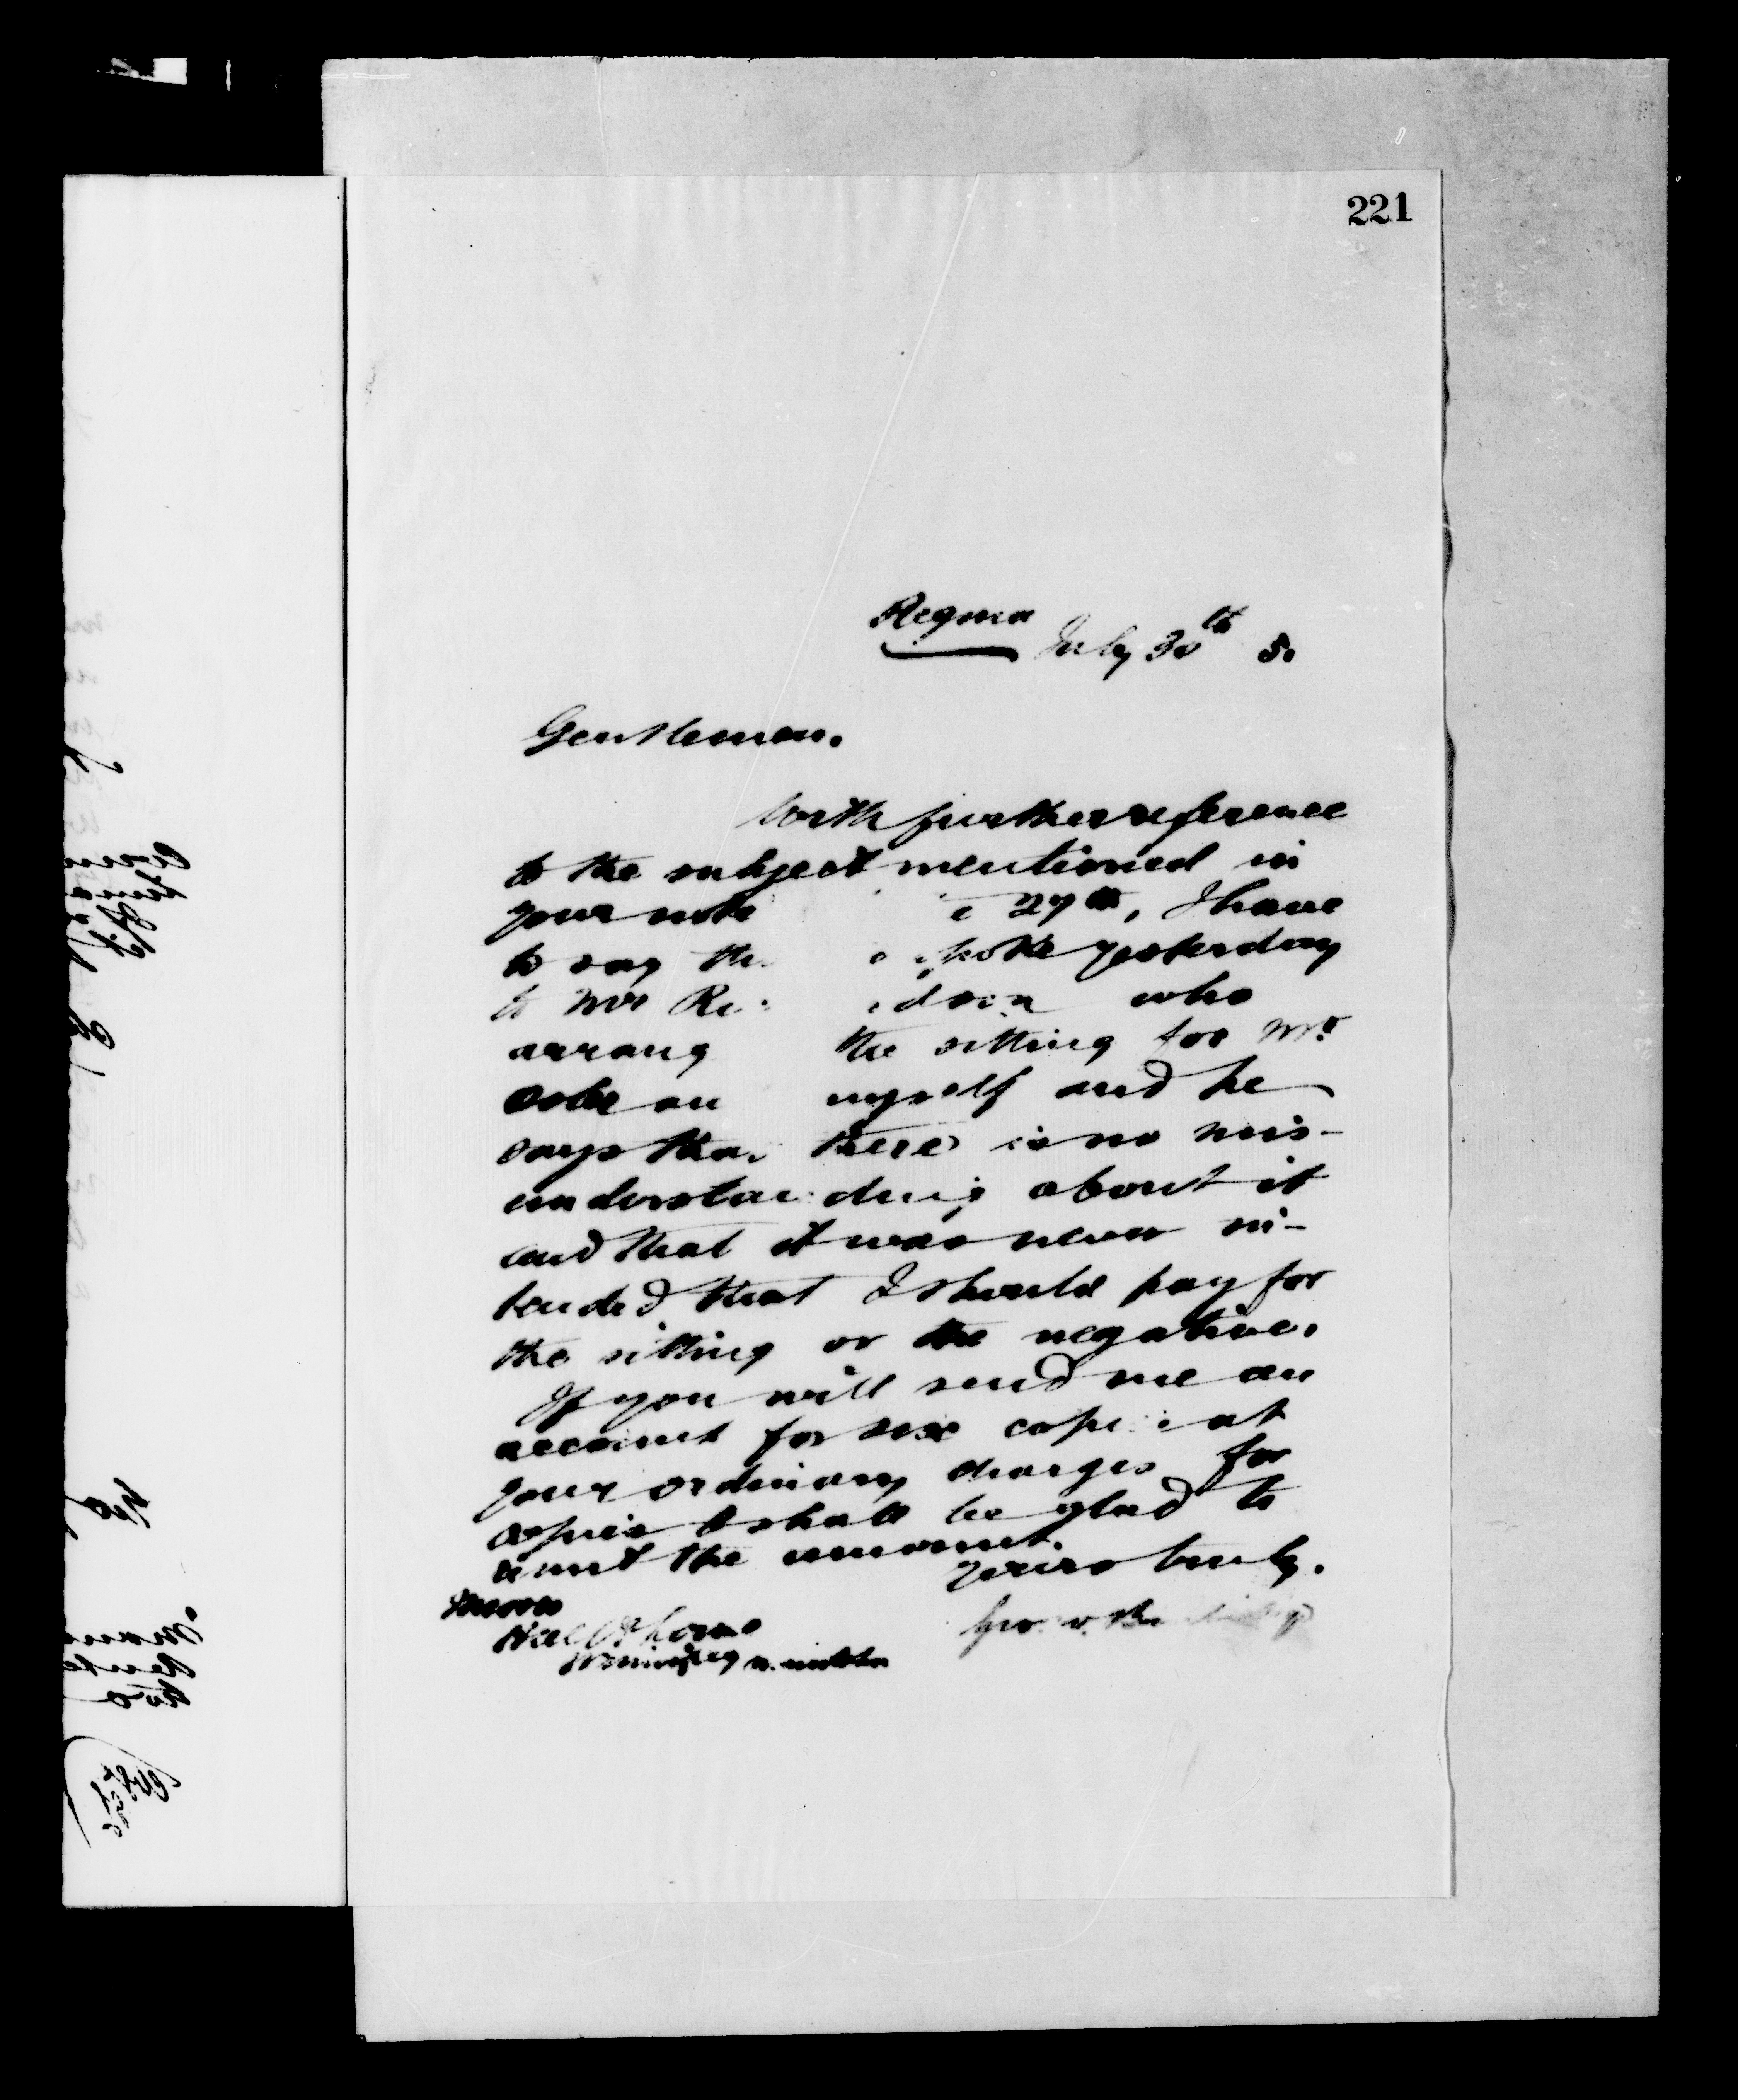 221
Regina
July 30th 5.
Gentlemen.
With further reference
to the subject mentioned in
your note 27th, I have
to say spoke yesterday
to Mr who
arrang the sitting for Mr
Osler an myself and he
says tha there is no mis-
understanding about it
and that it was never in-
tended that I should pay for
the sitting or the negative.
If you will send me an
account for six copies at
your ordinary charges for
copies I shall be glad to
remit the amount.
Yours truly.
Messrs
Hall & Lowe
Winnipeg